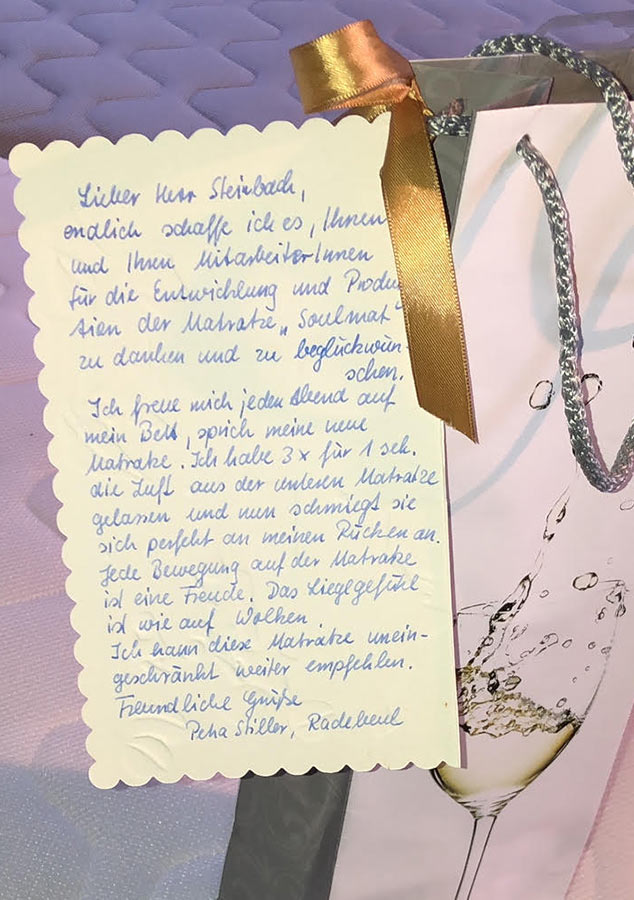 Lieber Herr Steinbach,
endlich schaffe ich es, Ihnen
und Ihren MitarbeiterInnen
für die Entwicklung und Produk
tion der Matratze „Soulmat"
zu danken und zu beglückwün-
schen.
Ich freue mich jeden Abend auf
mein Bett, sprich meine neue
Matratze. Ich habe 3x für 1 sek.
die Luft aus der unteren Matratze
gelassen und nun schmiegt sie
sich perfekt an meinen Rücken an.
Jede Bewegung auf der Matratze
ist eine Freude. Das Liegegefühl
ist wie auf Wolken.
Ich kann diese Matratze unein-
geschränkt weiter empfehlen.
Freundliche Grüße
Petra Stiller, Radebeul